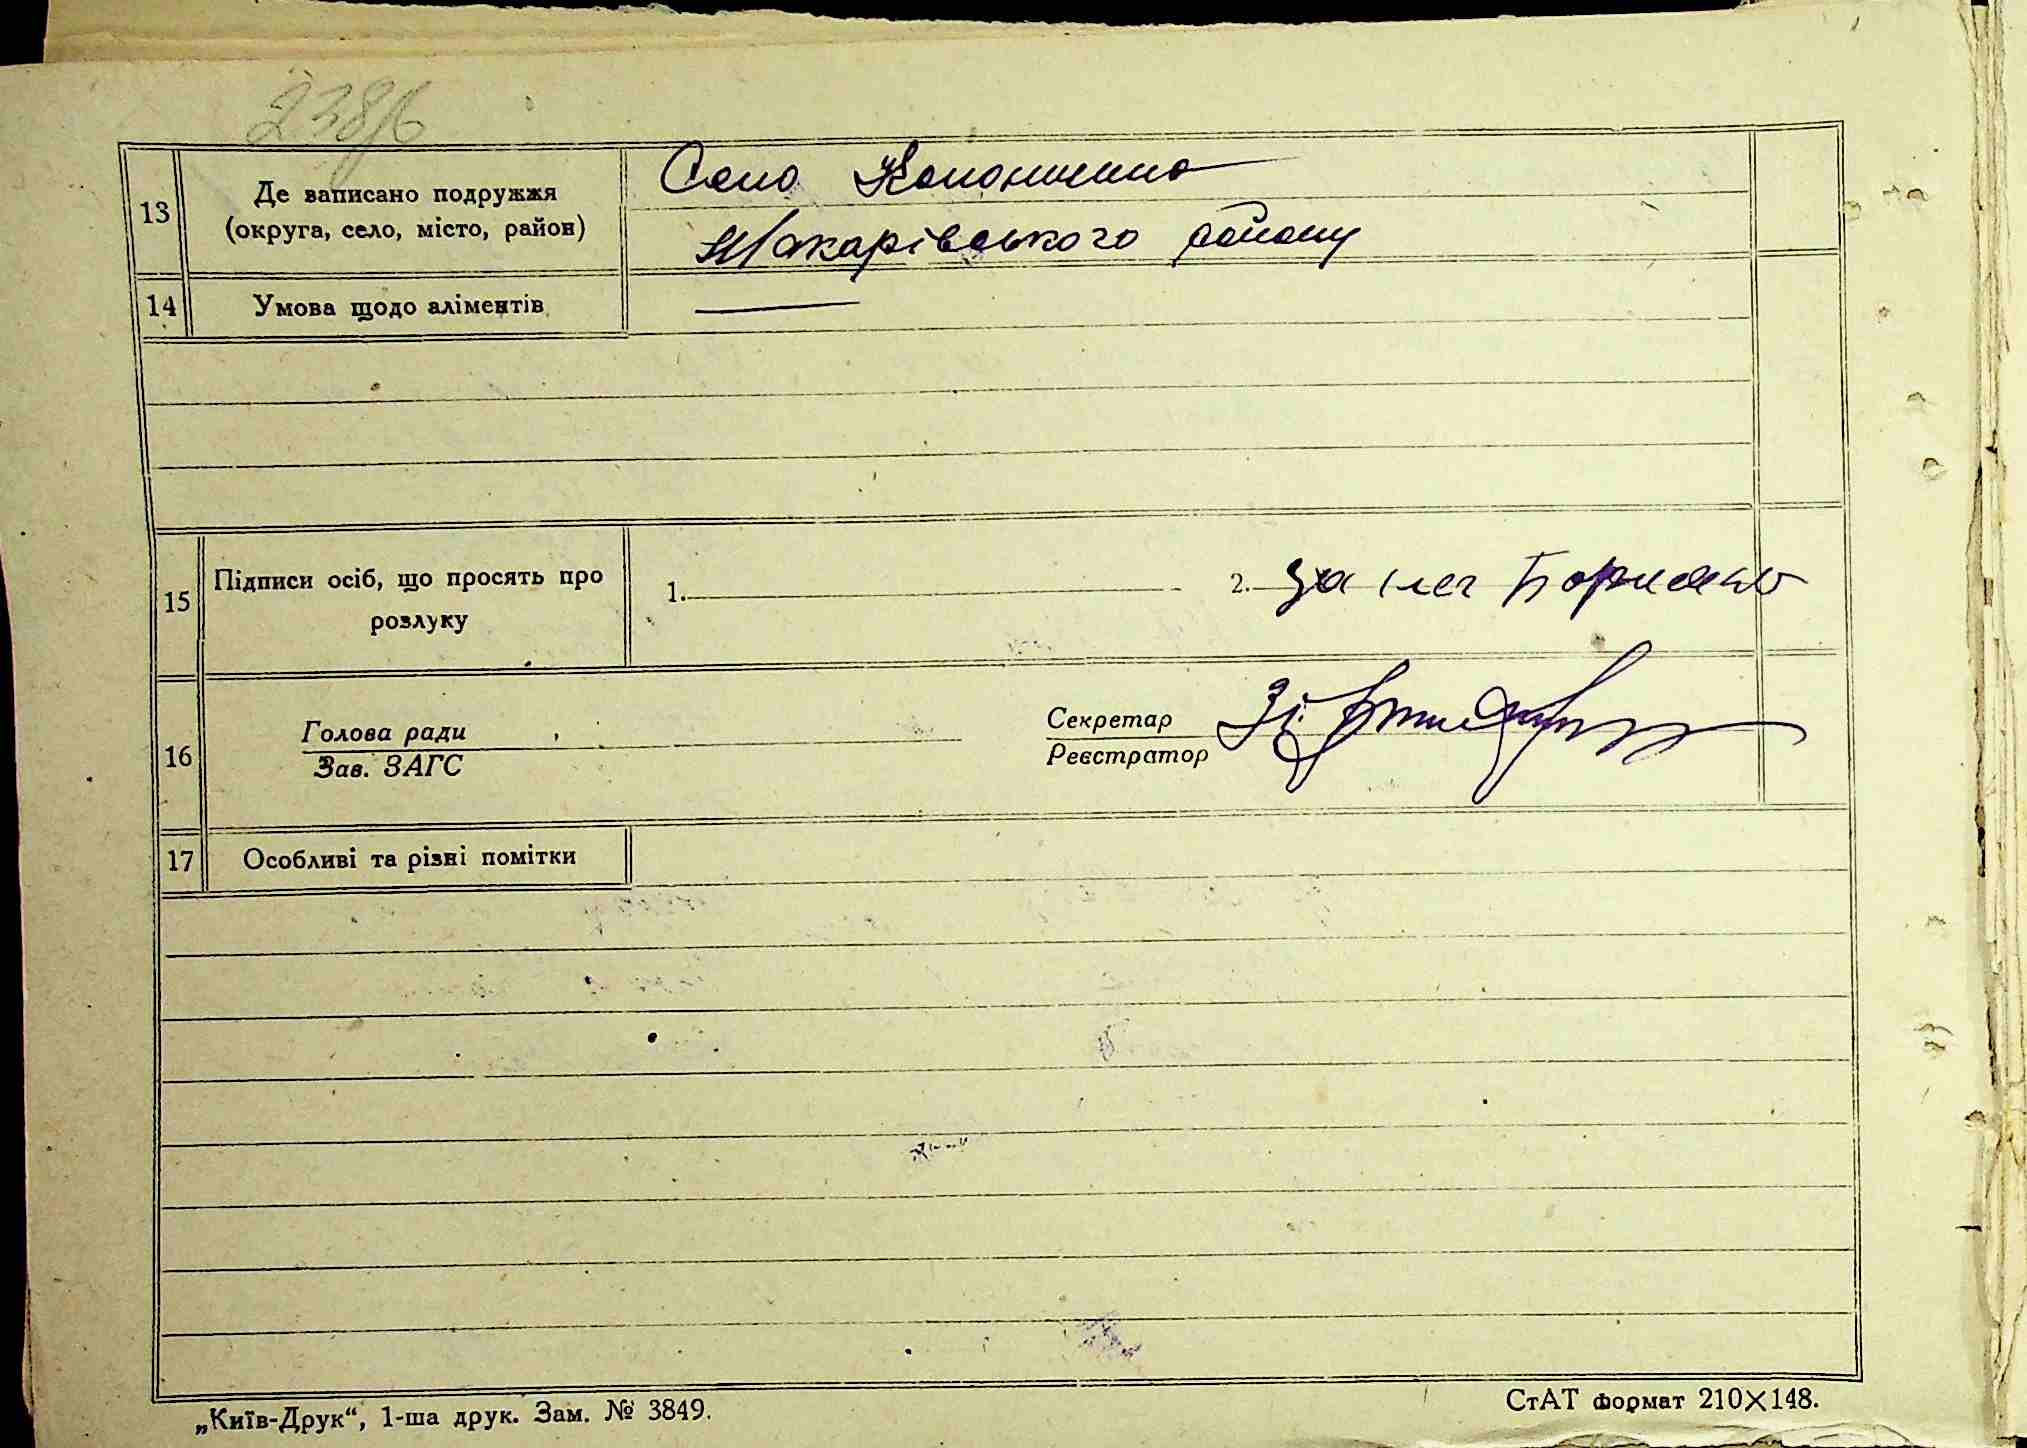 238/б
13
Де записано подружжя
(округа, село, місто, район)
Село
Макарівського району
14
Умова щодо аліментів
15
Підписи осіб, що просять про
розлуку
1.
2. за
16
Голова ради
Зав. ЗАГС
Секретар
Реєстратор
17
Особливі та різні помітки
„Київ-Друк“, 1-ша друк. Зам. № 3849.
СтАТ формат 210×148.